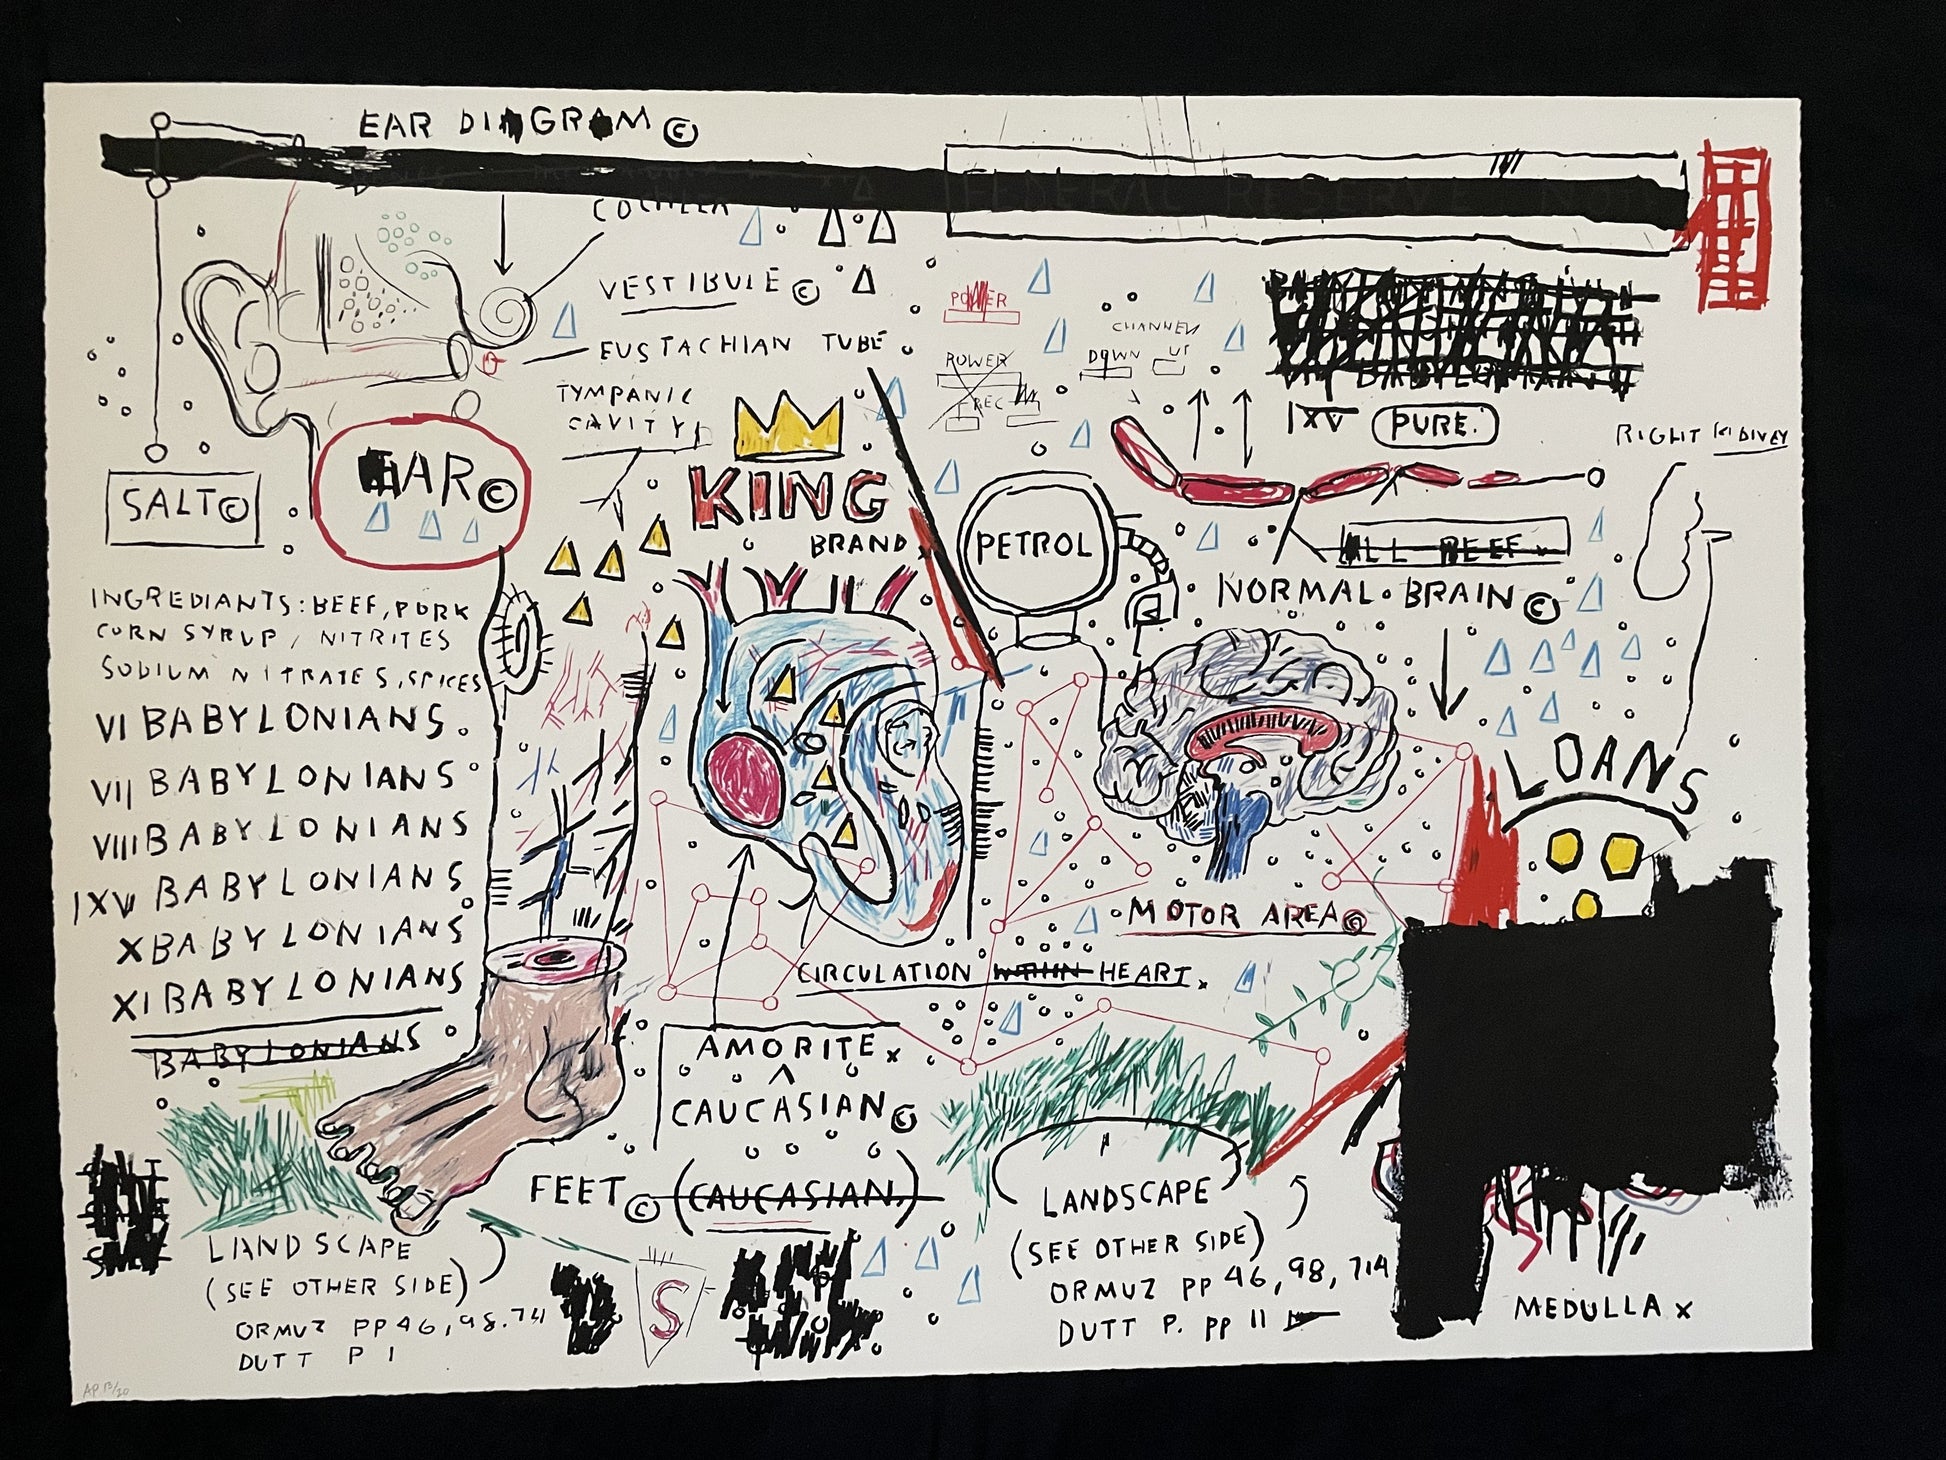 EAR DIAGRAM ©
COCHLEA
FEDERAL RESERVE NOTE
VESTIBULE ©
EUSTACHIAN TUBE
TYMPANIC
CAVITY
EAR ©
SALT ©
INGREDIANTS: BEEF, PORK
CORN SYRUP, NITRITES
SODIUM NITRATES, SPICES
VI BABYLONIANS
VII BABYLONIANS
VIII BABYLONIANS
IXV BABYLONIANS
X BABYLONIANS
XI BABYLONIANS
BABYLONIANS
LANDSCAPE
(SEE OTHER SIDE)
ORMUZ PP 46, 98, 714
DUTT P 1
AP 13/20
KING
BRAND
POWER
POWER
REC
CHANNEL
DOWN UP
VIII BABYLONIANS
IXV PURE.
RIGHT KIDNEY
PETROL
ALL BEEF
NORMAL BRAIN ©
LOANS
MOTOR AREA ©
CIRCULATION WITHIN HEART.
AMORITE x
CAUCASIAN ©
FEET © (CAUCASIAN.)
S
LANDSCAPE
(SEE OTHER SIDE)
ORMUZ PP 46, 98, 714
DUTT P. PP 11
MEDULLA x